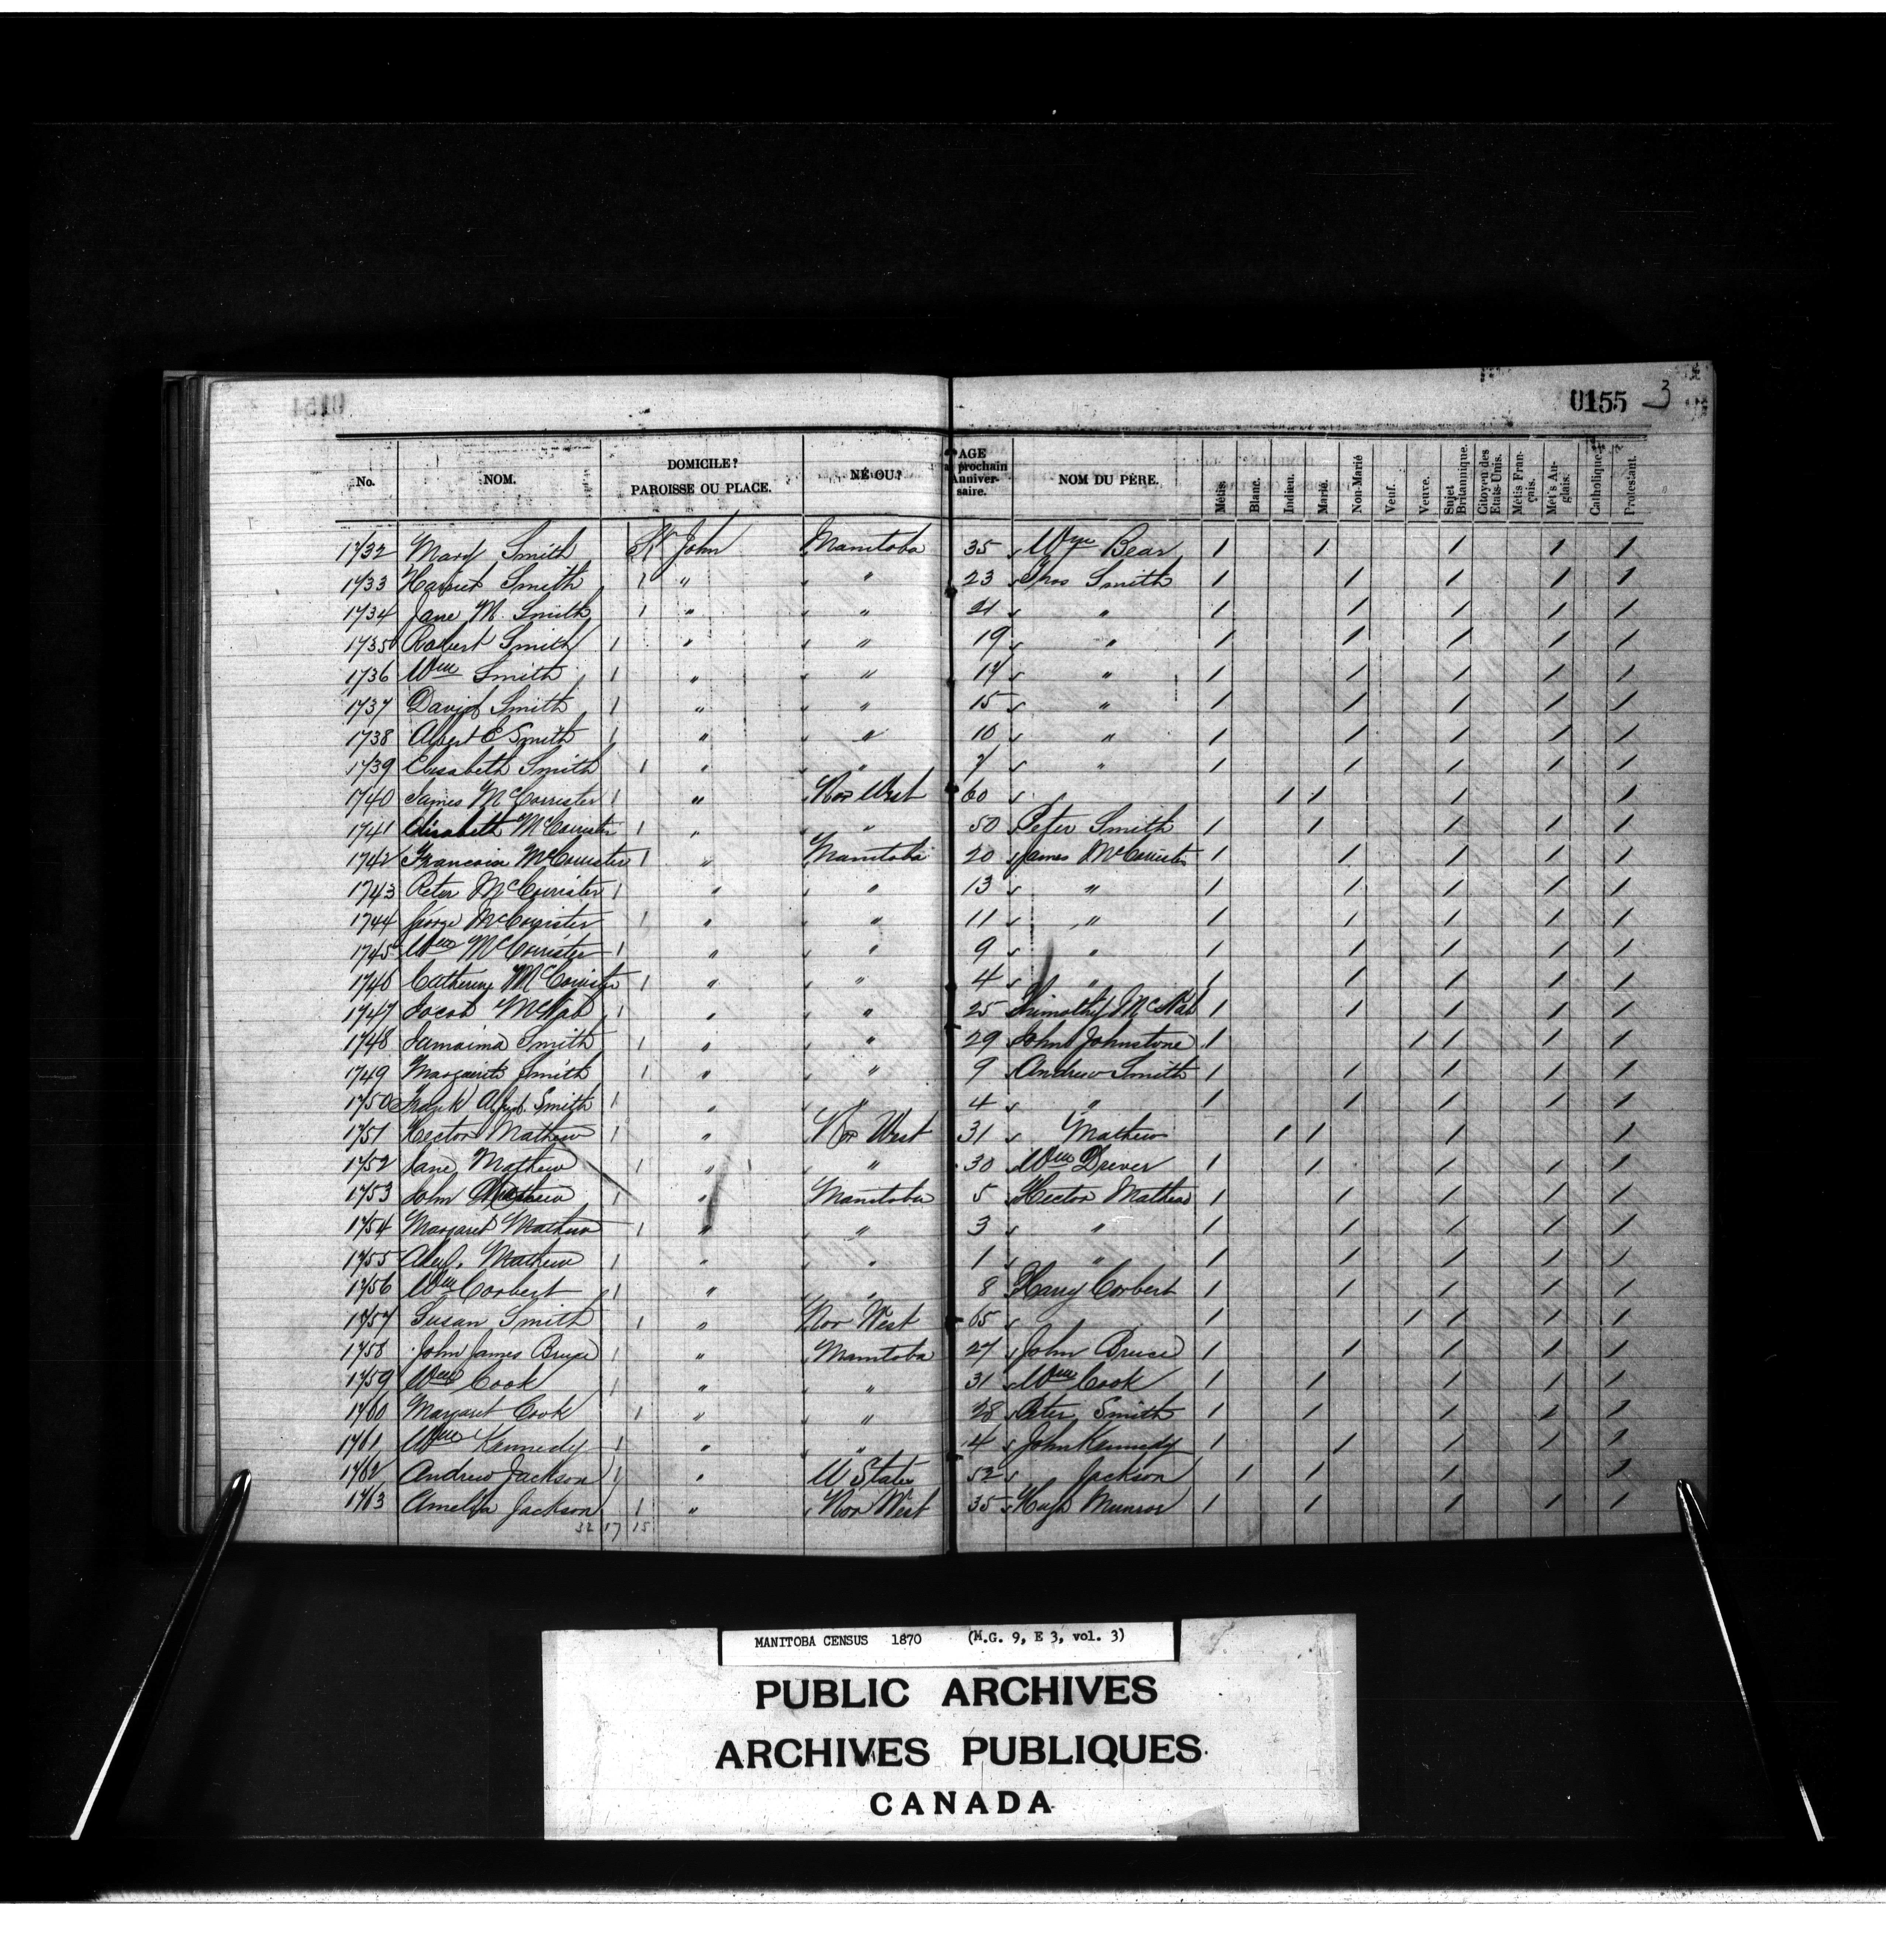 0155 3
No. NOM. DOMICILE? PAROISSE OU PLACE. NÉ OU? AGE prochain Anniversaire. NOM DU PÈRE. Métis. Blanc. Indien. Marié. Non-Marié Veuf. Veuve. Sujet Britannique. Citoyen des Etats-Unis. Métis Français. Métis Anglais. Catholique. Protestant.
1732 Mary Smith St John Manitoba 35 Wm Bear / / / / /
1733 Harriet Smith 1 " " 23 Thos Smith / / / / /
1734 Jane M. Smith 1 " " 21 " / / / / /
1735 Robert Smith 1 " " 19 " / / / / /
1736 Wm Smith 1 " " 17 " / / / / /
1737 David Smith 1 " " 15 " / / / / /
1738 Albert E Smith 1 " " 10 " / / / / /
1739 Elisabeth Smith 1 " " 7 " / / / / /
1740 James McCorrister 1 " Nor West 60 / / / /
1741 Elisabeth McCorrister 1 " " 50 Peter Smith / / / / /
1742 McCorrister 1 " Manitoba 20 James McCorrister / / / / /
1743 Peter McCorrister 1 " " 13 " / / / / /
1744 George McCorrister 1 " " 11 " / / / / /
1745 Wm McCorrister 1 " " 9 " / / / / /
1746 Catherine McCorrister 1 " " 4 " / / / / /
1747 Jacob McNab 1 " " 25 Thimothy McNab / / / / /
1748 Jamaima Smith 1 " " 29 John Johnstone / / / / /
1749 Smith 1 " " 9 Andrew Smith / / / / /
1750 Frank Smith 1 " " 4 " / / / / /
1751 Hector Mathew 1 " Nor West 31 Mathew / / / /
1752 Jane Mathew 1 " " 30 Wm Drever / / / / /
1753 John Mathew 1 " Manitoba 5 Hector Mathew / / / / /
1754 Margaret Mathew 1 " " 3 " / / / / /
1755 Alex. Mathew 1 " " 1 " / / / / /
1756 Wm Corbert 1 " " 8 Harry Corbert / / / / /
1757 Susan Smith 1 " Nor West 65 / / / / /
1758 John James Bruce 1 " Manitoba 27 John Bruce / / / / /
1759 Wm Cook 1 " " 31 Wm Cook / / / / /
1760 Margaret Cook 1 " " 28 Peter Smith / / / / /
1761 Wm Kennedy 1 " " 4 John Kennedy / / / / /
1762 Andrew Jackson 1 " U States 52 Jackson / / / /
1763 Amelia Jackson 1 " Nor West 35 Hugh Munroe / / / / /
32 17 15
MANITOBA CENSUS 1870 (M.G. 9, E 3, vol. 3)
PUBLIC ARCHIVES
ARCHIVES PUBLIQUES
CANADA